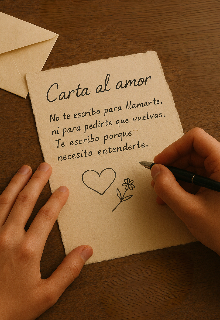 Carta al amor
No te escribo para llamarte,
ni para pedirte que vuelvas.
Te escribo porque
necesito entenderte.